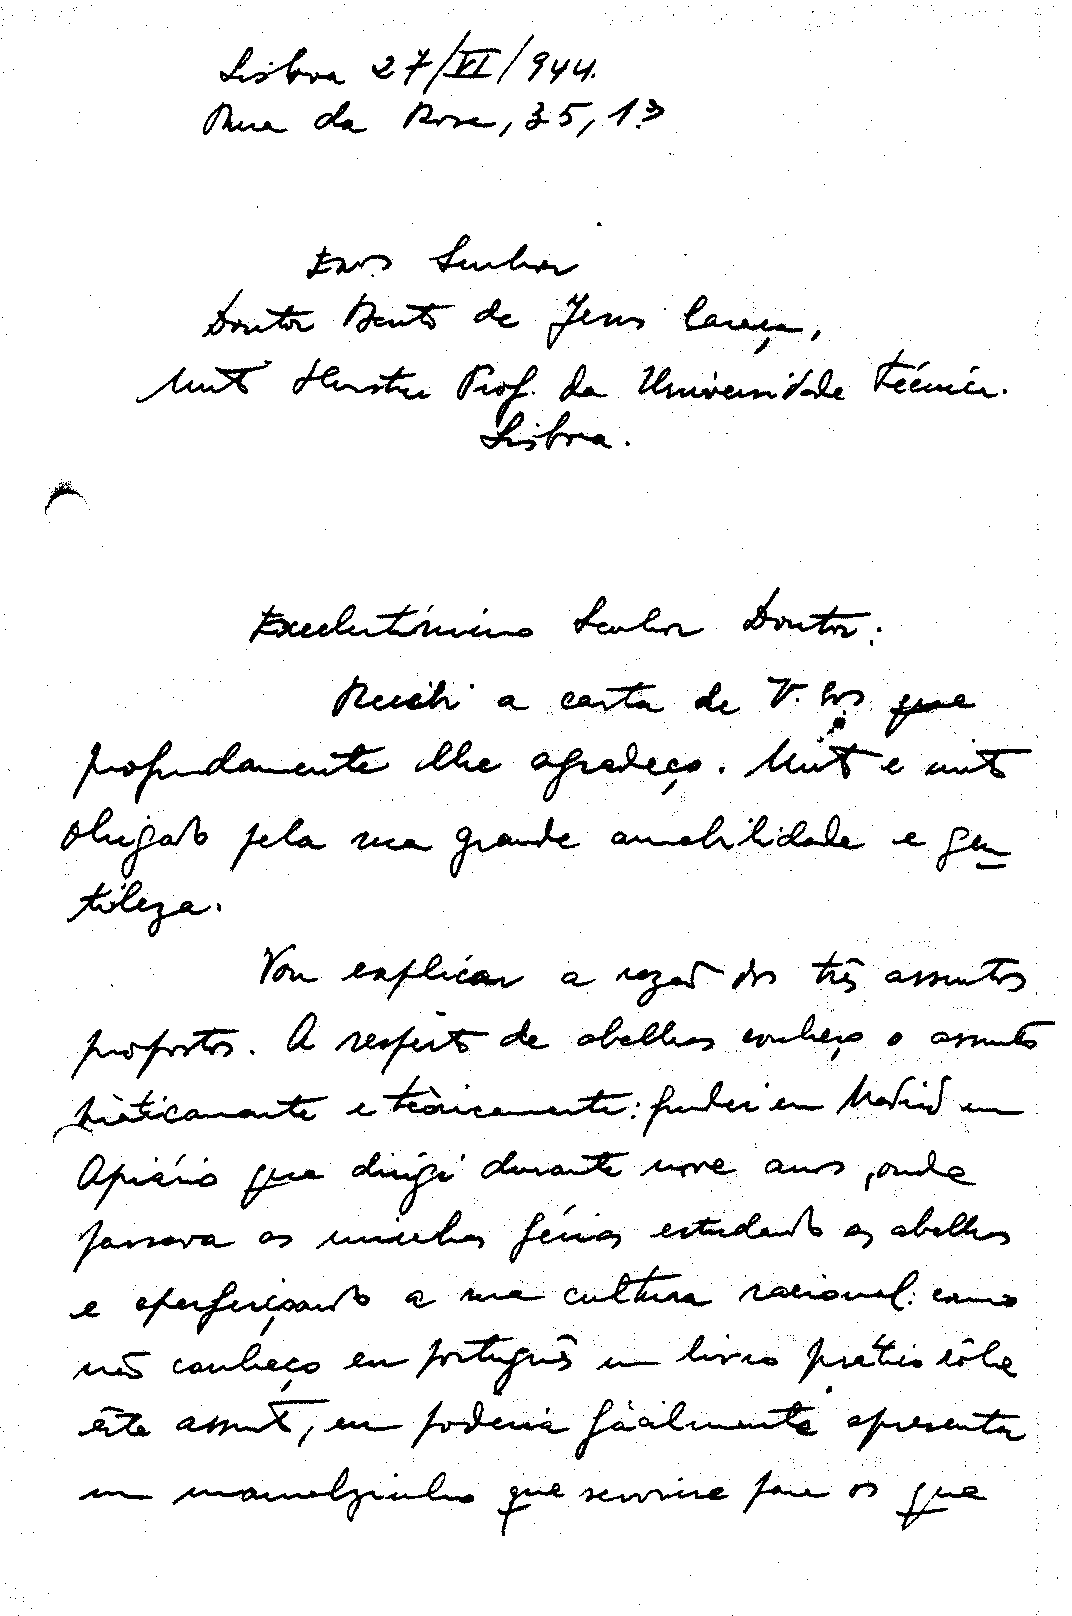 Lisboa 27/VI/944.
Rua da Rosa, 35, 1º
Exmº Senhor
Doutor Bento de Jesus Caraça,
Muitº Ilustre Prof. da Universidade Técnica.
Lisboa.
Excelentíssimo Senhor Doutor:
Recebi a carta de V. Exª que
profundamente lhe agradeço. Muitº e muitº
obrigado pela sua grande amabilidade e gen
tileza.
Vou explicar a razão dos três assuntos
propostos. A respeito de abelhas conheço o assunto
pràticamente e teòricamente: fundei em Madrid um
Apiário que dirigi durante nove anos, onde
passava as minhas férias estudando as abelhas
e aperfeiçoando a sua cultura racional: como
não conheço em português um livro prático sôbre
êste assunto, eu poderia fàcilmente apresentar
um manualzinho que servisse para os que